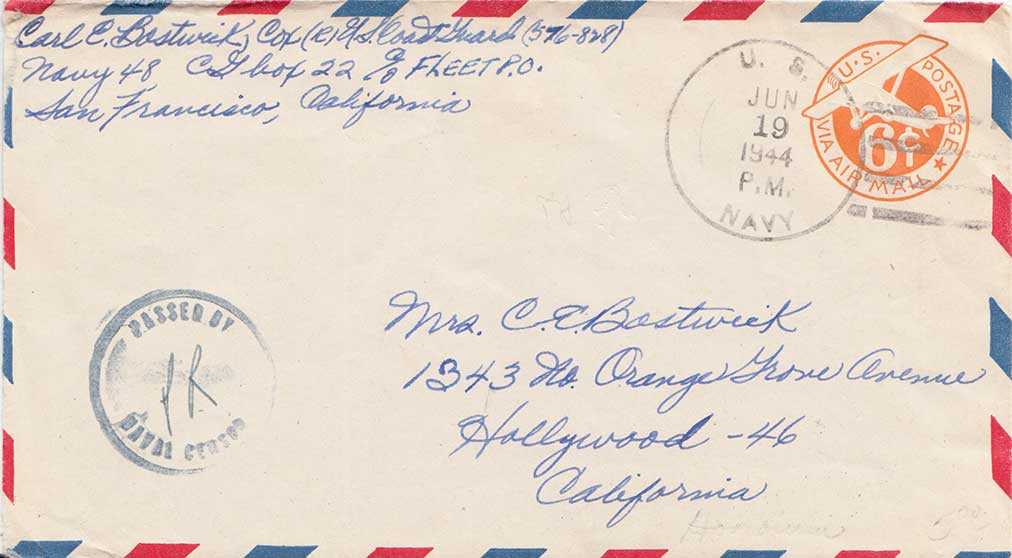 Carl E. Bostwick, Cox (R) U.S. Coast Guard (576-828)
Navy 48 CG box 22 c/o FLEET P.O.
San Francisco, California
U. S.
JUN
19
1944
P.M.
NAVY
U.S. POSTAGE
6¢
VIA AIR MAIL
PASSED BY
NAVAL CENSOR
Mrs. C.E. Bostwick
1343 No. Orange Grove Avenue
Hollywood - 46
California